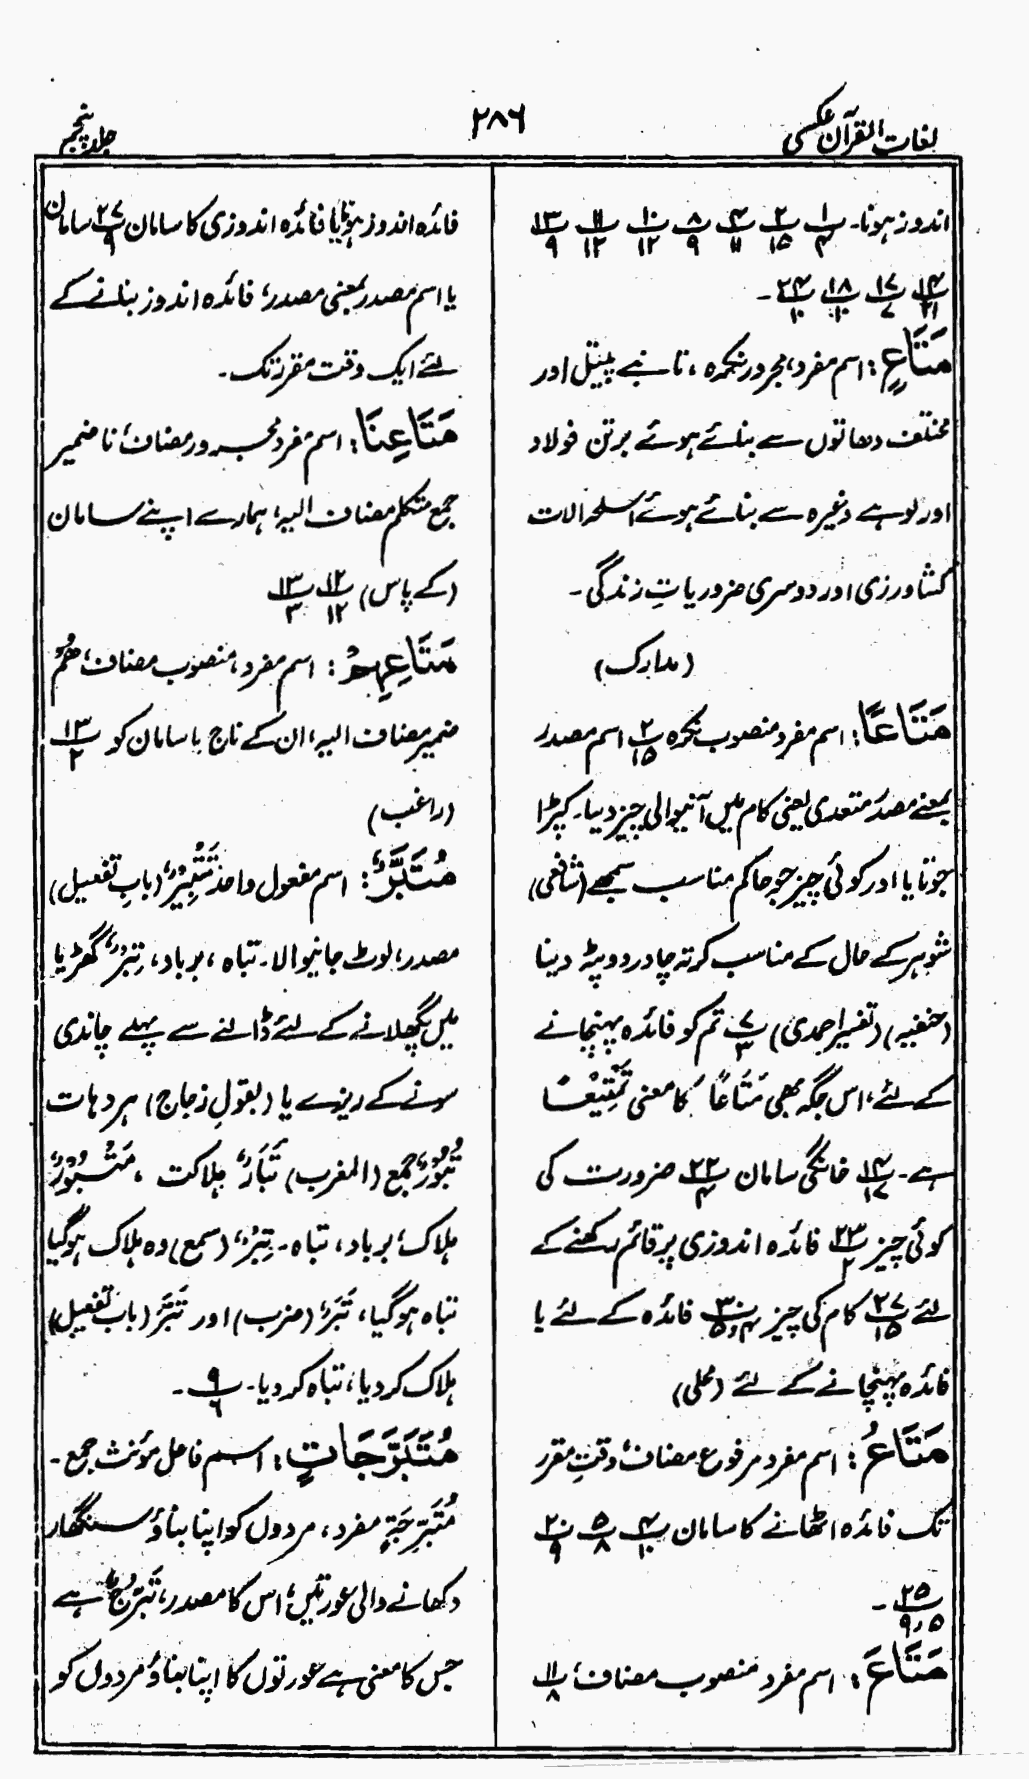 لغات القرآن عکسی
۲۸۶
جلد پنجم
اندوز ہونا۔ ۱/۴ ۲/۱۵ ۴/۱۱ ۸/۹ ۱۰/۱۲ ۱۱/۱۲ ۱۳/۹
۱۴/۲۱ ۱۷/۷ ۱۸/۱۰ ۲۴/۱۰ ۔
مَتَاعٍ: اسم مفرد، مجرور نکرہ، تانبے پیتل اور
مختلف دھاتوں سے بنائے ہوئے برتن فولاد
اور لوہے وغیرہ سے بنائے ہوئے اسلحہ الات
کشاورزی اور دوسری ضروریاتِ زندگی۔
(مدارک)
مَتَاعًا: اسم مفرد منصوب نکرہ ۲/۱۵ اسم مصدر
بمعنے مصدر متعدی یعنی کام میں آنیوالی چیز دینا۔ کپڑا
جوتا یا اور کوئی چیز جو حاکم مناسب سمجھے (شافعی)
شوہر کے حال کے مناسب کرتہ چادر دوپٹہ دینا
(حنفیہ) (تفسیر احمدی) ۷/۳ تم کو فائدہ پہنچانے
کے لئے، اس جگہ بھی مَتَاعًا کا معنی تَمْتِیْعًا
ہے۔ ۱۴/۱۷ خانگی سامان ۲۲/۴ ضرورت کی
کوئی چیز ۲۳/۲ فائدہ اندوزی پر قائم رکھنے کے
لئے ۲۷/۱۵ کام کی چیز ۳۰/۴،۵ فائدہ کے لئے یا
فائدہ پہنچانے کے لئے (محلی)
مَتَاعُ: اسم مفرد مرفوع مضاف، وقتِ مقرر
تک فائدہ اٹھانے کا سامان ۴/۱۰ ۵/۸ ۲۰/۹
۲۵/۵،۹ ۔
مَتَاعَ: اسم مفرد منصوب مضاف، ۱۱/۸
فائدہ اندوز ہونا یا فائدہ اندوزی کا سامان ۲۷/۹ سامان
یا اسم مصدر بمعنی مصدر، فائدہ اندوز بنانے کے
لئے ایک وقت مقرر تک۔
مَتَاعِنَا: اسم مفرد مجرور مضاف، نا ضمیر
جمع متکلم مضاف الیہ، ہمارے اپنے سامان
(کے پاس) ۱۲/۱۲ ۱۳/۳
مَتَاعِهِمْ: اسم مفرد، منصوب مضاف، هُمْ
ضمیر مضاف الیہ، ان کے ناج یا سامان کو ۱۳/۲
(راغب)
مُتَبَّرٌ: اسم مفعول واحد تَتْبِیْرٌ (باب تفعیل)
مصدر، لوٹ جانیوالا۔ تباہ، برباد، تِبْرٌ گھڑیا
میں پگھلانے کے لئے ڈالنے سے پہلے چاندی
سونے کے ریزے یا (بقول زجاج) ہر دہات
تُبُوْرٌ جمع (المغرب) تَبَارٌ ہلاکت، مَتْبُوْرٌ
ہلاک، برباد، تباہ۔ تَبِرَ (سمع) وہ ہلاک ہوگیا
تباہ ہوگیا، تَبَرَ (ضرب) اور تَبَّرَ (باب تفعیل)
ہلاک کر دیا، تباہ کر دیا۔ ۹/۶ ۔
مُتَبَرِّجَاتٍ: اسم فاعل مؤنث جمع۔
مُتَبَرِّجَةٍ مفرد، مردوں کو اپنا بناؤ سنگھار
دکھانے والی عورتیں، اس کا مصدر تَبَرُّجٌ ہے
جس کا معنی ہے عورتوں کا اپنا بناؤ مردوں کو